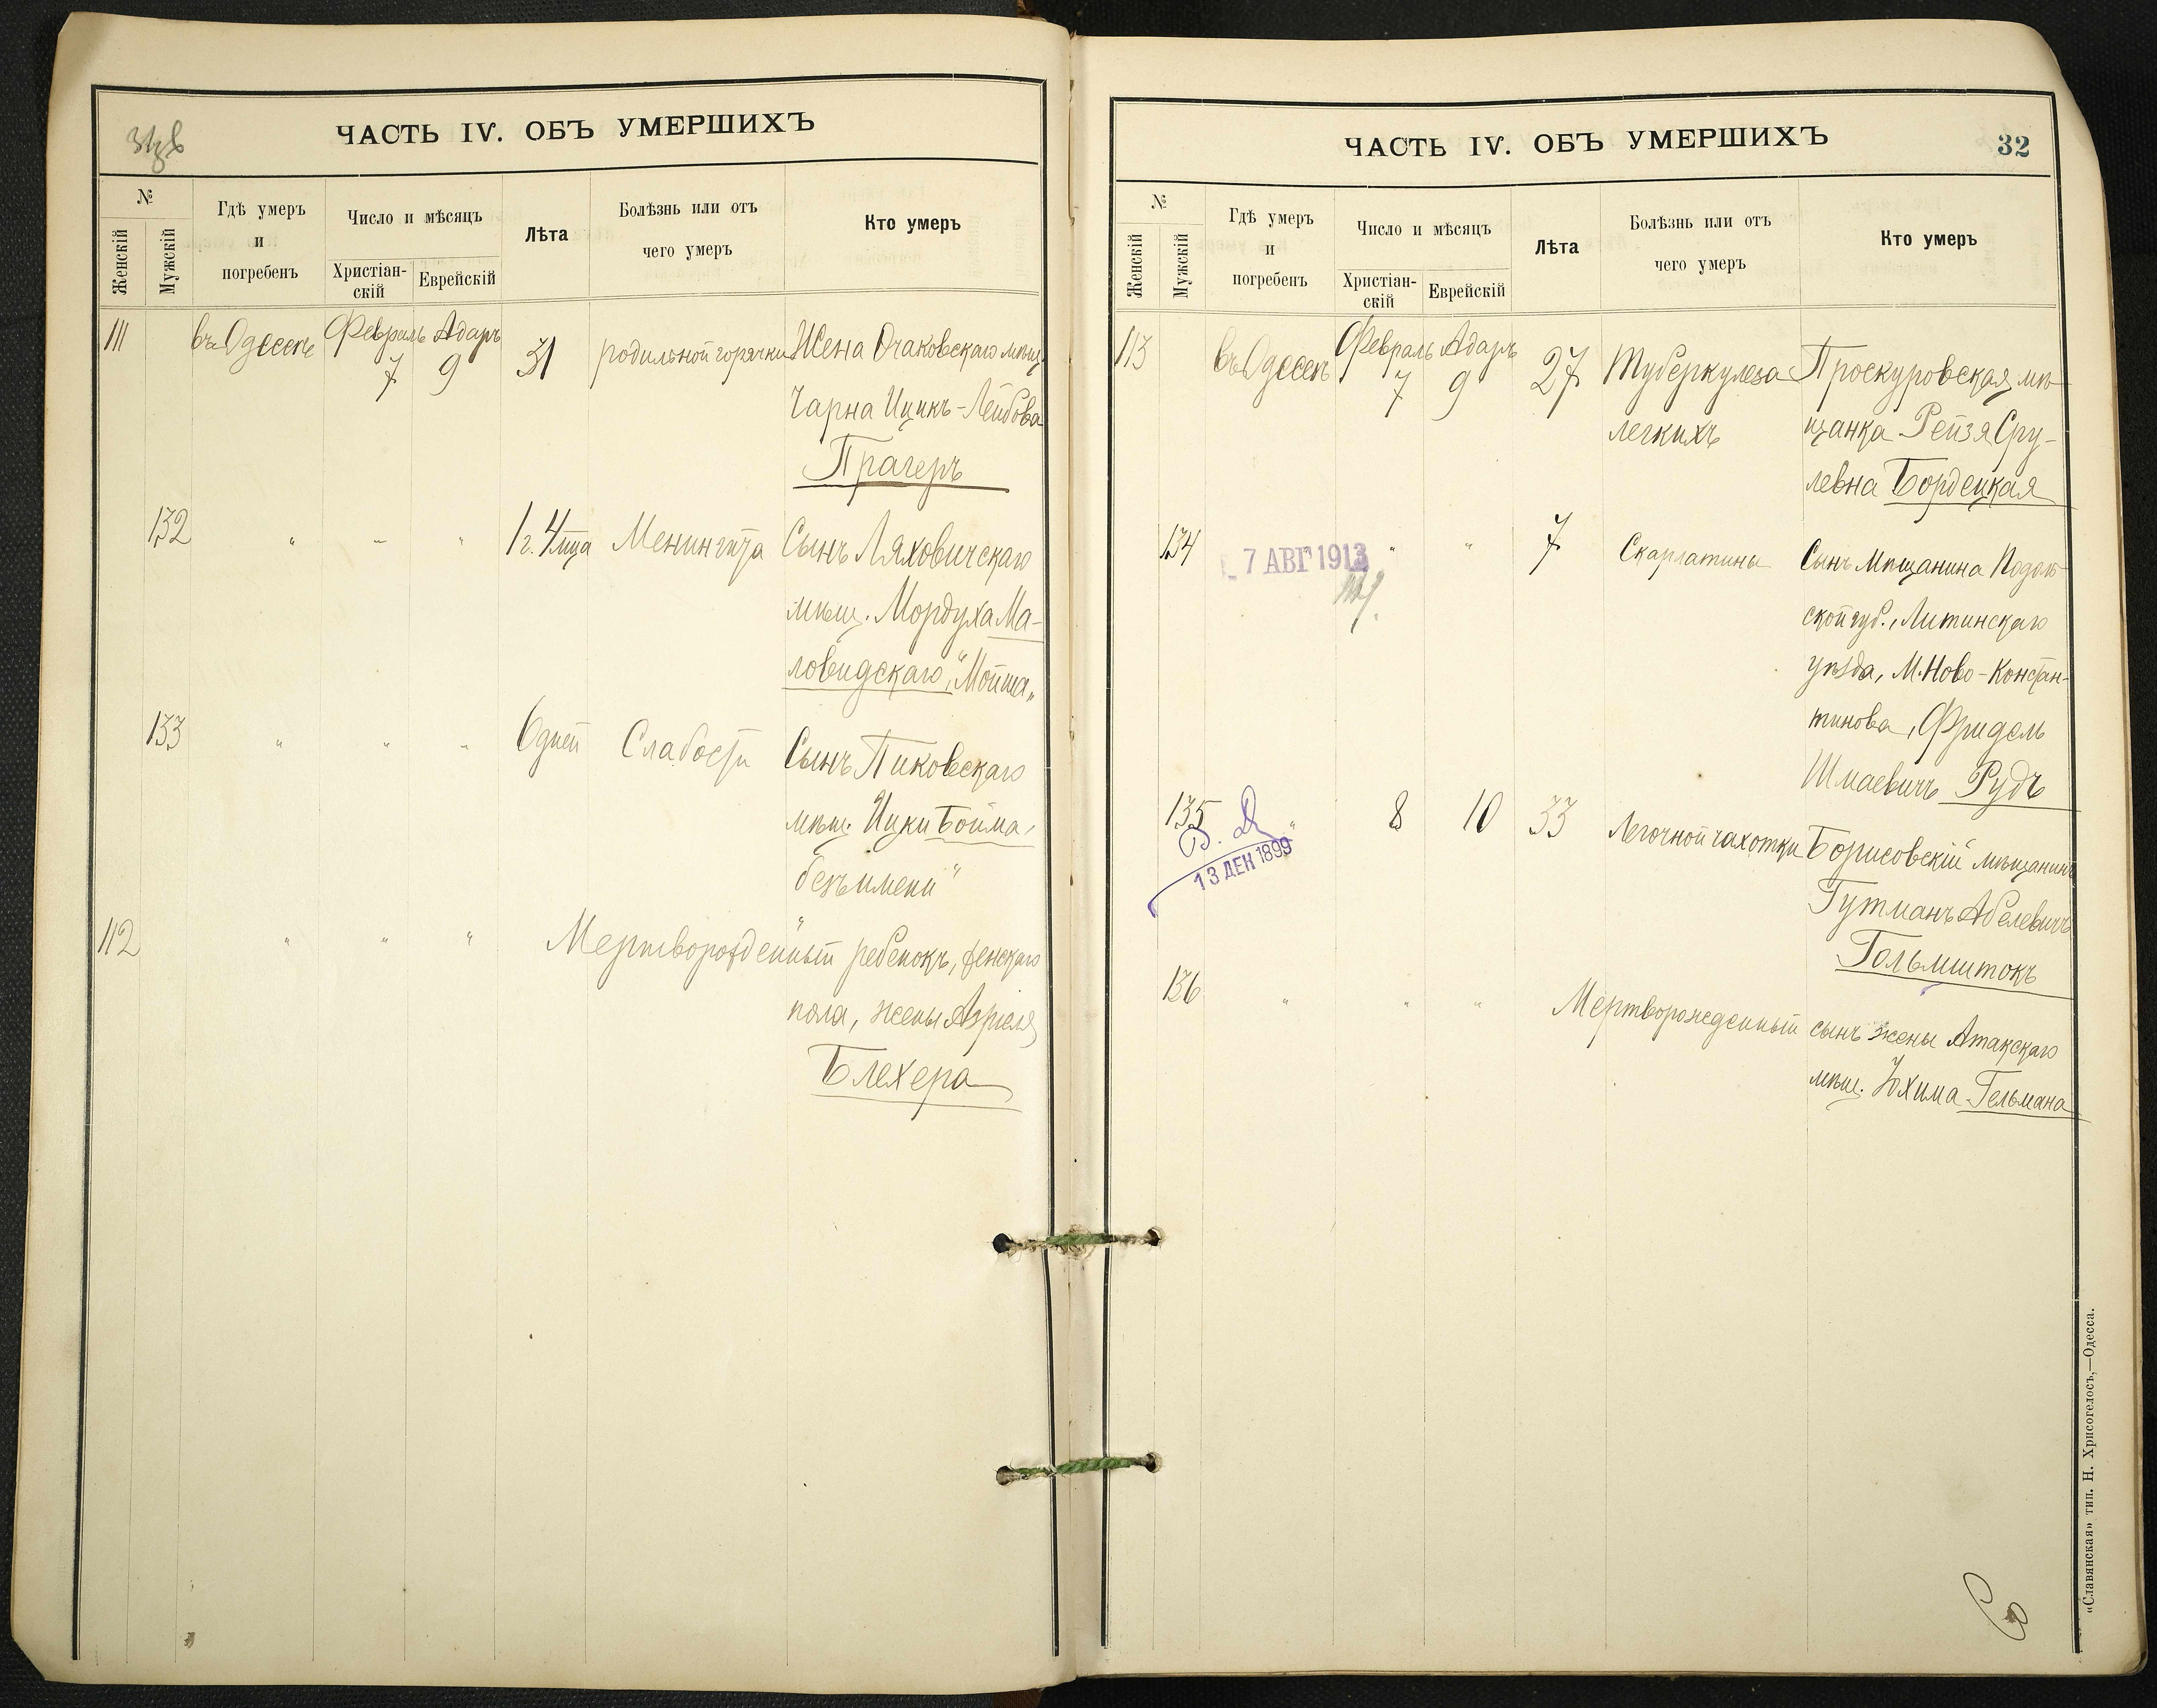 31об
ЧАСТЬ IV. ОБЪ УМЕРШИХЪ
№
Женскій
Мужскій
Гдѣ умеръ
и
погребенъ
Число и мѣсяцъ
Христіан-
скій
Еврейскій
Лѣта
Болѣзнь или отъ
чего умеръ
Кто умеръ
111 въ Одессѣ Февраль 7 Адаръ 9 31 родильной горячки Жена Очаковскаго мѣщ.
Чарна Ицикъ-Лейбова
Прагеръ
132 " – " 1 г. 4 мца Менингита Сынъ Ляховичскаго
мѣщ. Мордуха Ма-
ловидскаго, "Мойша"
133 " " " 6 дней Слабости Сынъ Пиковскаго
мѣщ. Ицки Бойма,
"безъ имени"
112 " " " Мертворожденный ребенокъ, женскаго
пола, жены Азріеля
Блехера
ЧАСТЬ IV. ОБЪ УМЕРШИХЪ
32
№
Женскій
Мужскій
Гдѣ умеръ
и
погребенъ
Число и мѣсяцъ
Христіан-
скій
Еврейскій
Лѣта
Болѣзнь или отъ
чего умеръ
Кто умеръ
113 въ Одессѣ Февраль 7 Адаръ 9 27 Туберкулеза Проскуровская мѣ-
легкихъ щанка Рейзя Сру-
левна Бордецкая
134 7 АВГ 1913 " " 7 Скарлатины Сынъ Мѣщанина Подоль-
ской губ., Литинскаго
уѣзда, М. Ново-Констан-
тинова, Фридель
Шмаевичъ Рудъ
135 " 8 10 33 Легочной чахотки Борисовскій мѣщанинъ
13 ДЕК 1899
Гутманъ Абелевичъ
Гольмштокъ
136 " " " Мертворожденный сынъ жены Атакскаго
мѣщ. Юхима Гельмана
«Славянская» тип. Н. Хрисогелосъ,—Одесса.